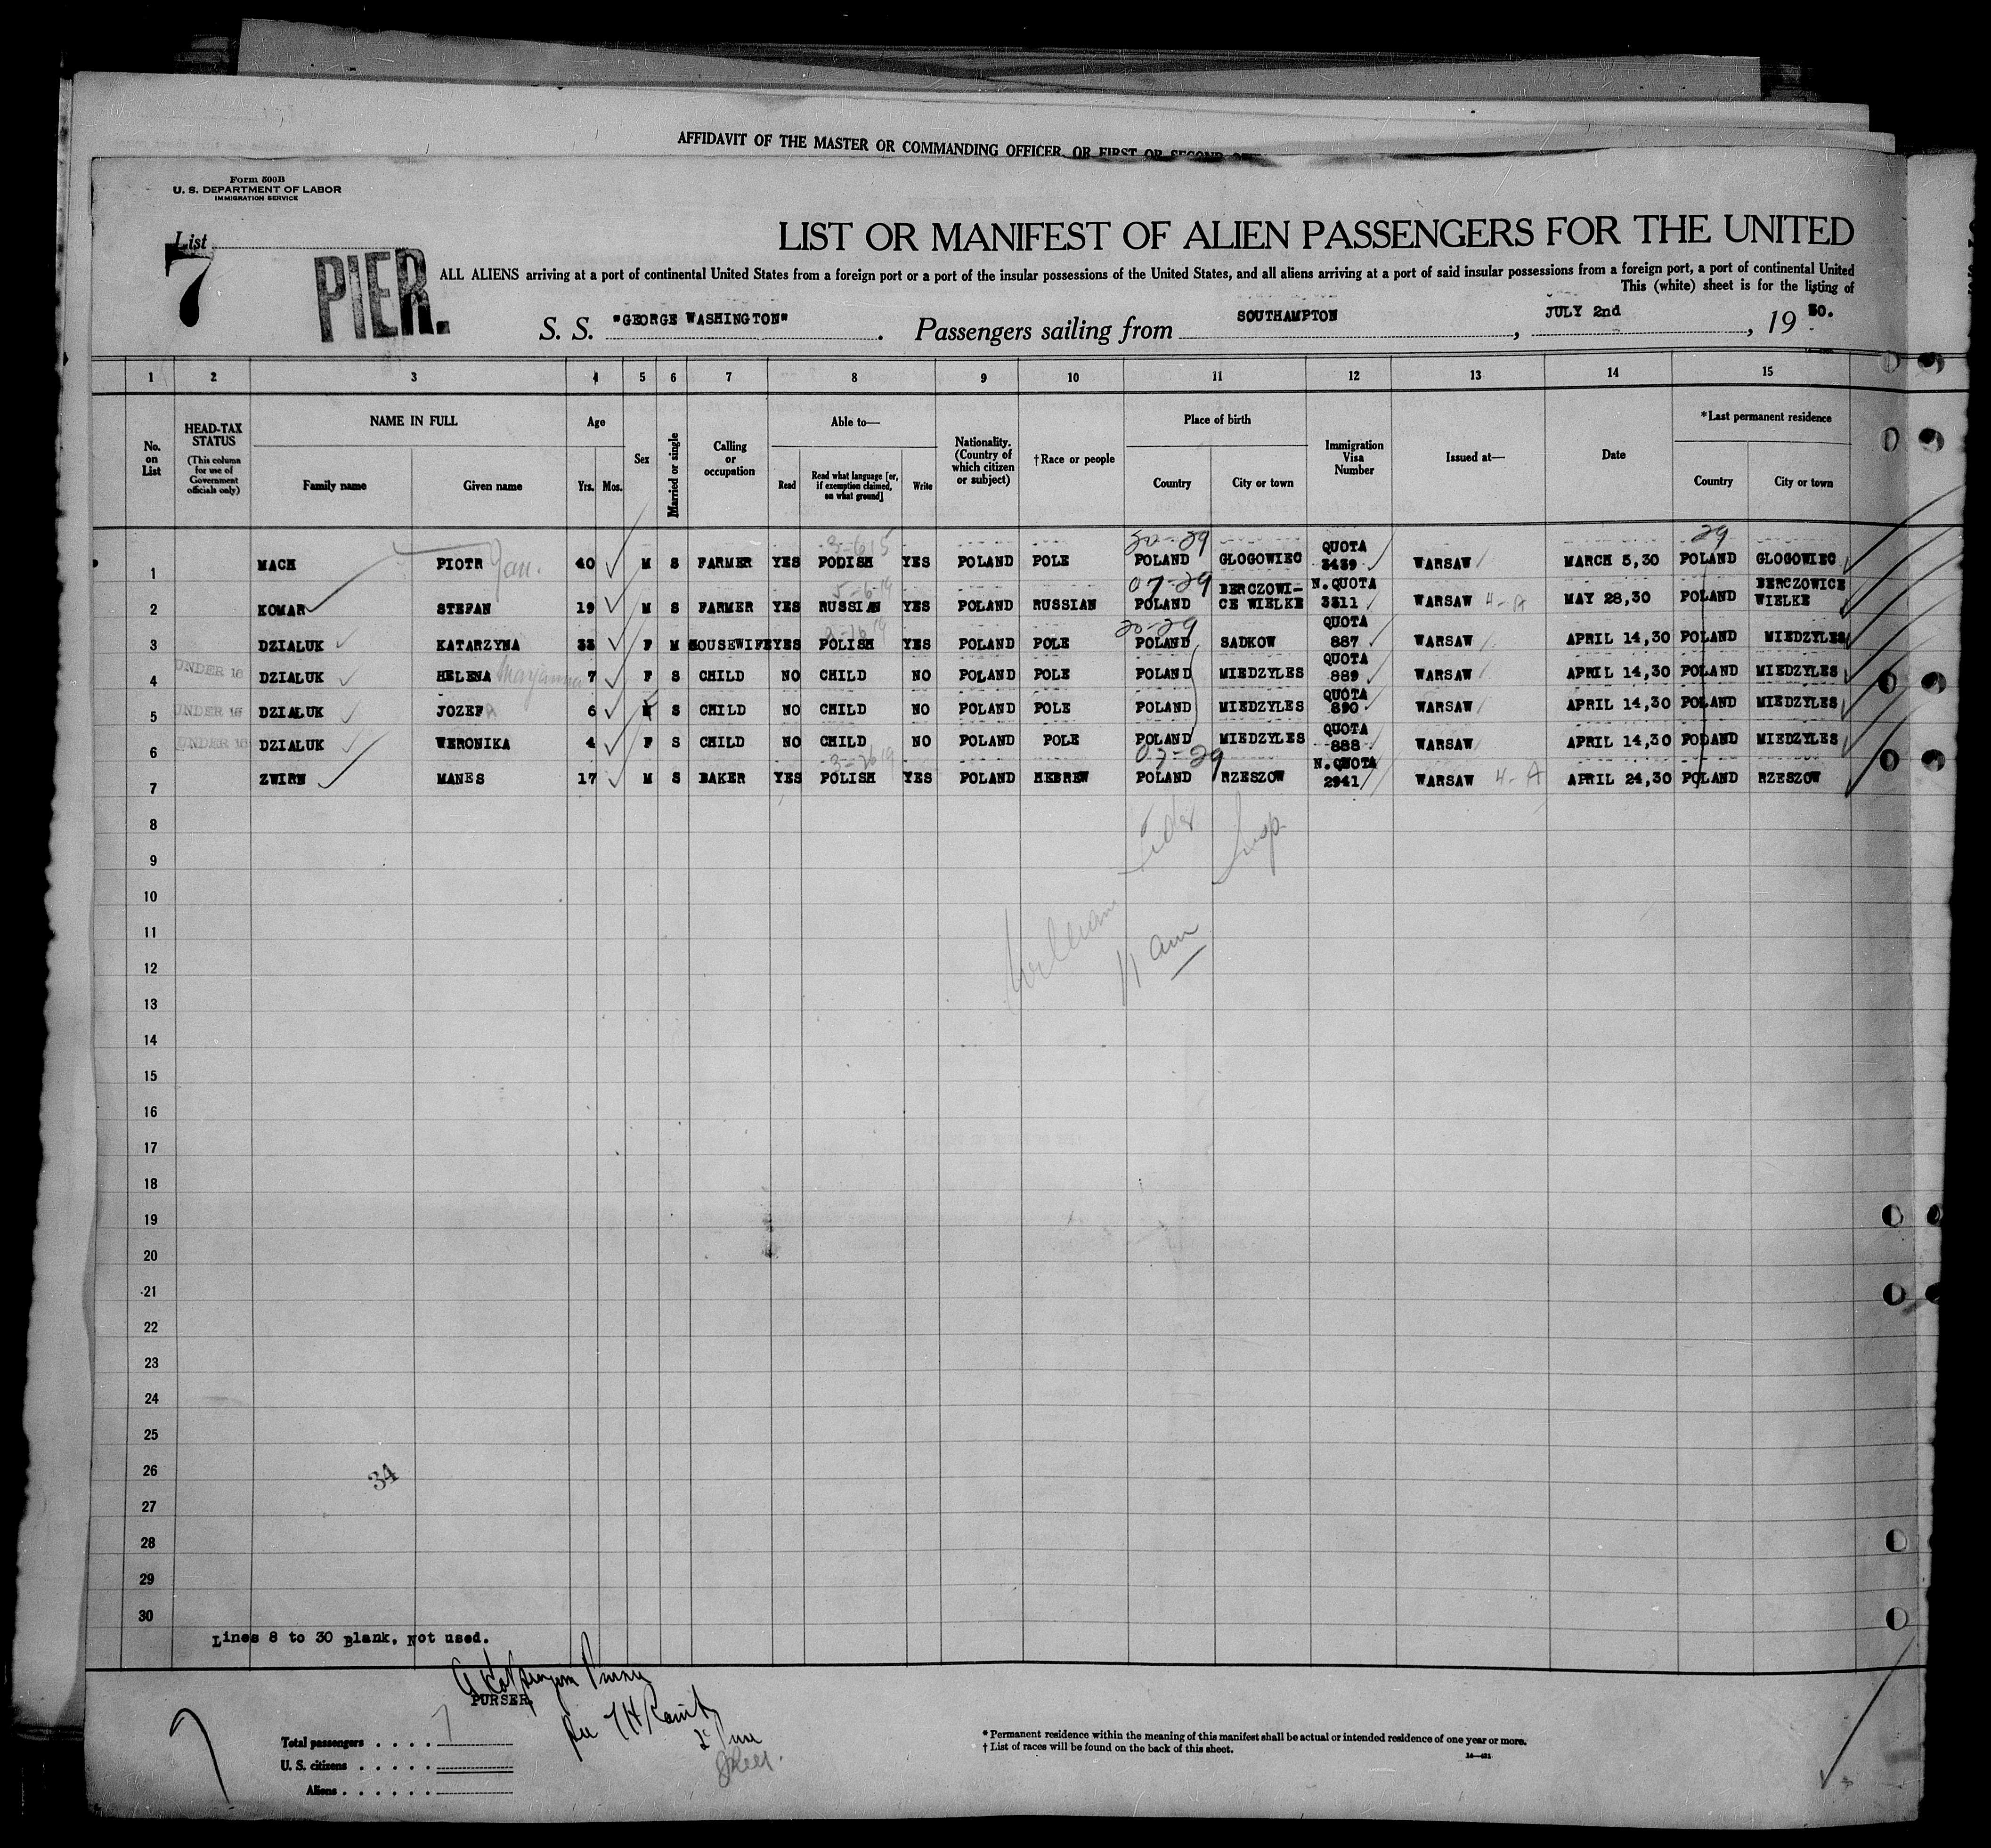 AFFIDAVIT OF THE MASTER OR COMMANDING OFFICER, OR FIRST OR SECOND
Form 500B
U. S. DEPARTMENT OF LABOR
IMMIGRATION SERVICE
List
7
PIER.
LIST OR MANIFEST OF ALIEN PASSENGERS FOR THE UNITED
ALL ALIENS arriving at a port of continental United States from a foreign port or a port of the insular possessions of the United States, and all aliens arriving at a port of said insular possessions from a foreign port, a port of continental United
This (white) sheet is for the listing of
S. S. "GEORGE WASHINGTON". Passengers sailing from SOUTHAMPTON, JULY 2nd, 19 30.
1 2 3 4 5 6 7 8 9 10 11 12 13 14 15
No. on List
HEAD-TAX STATUS (This column for use of Government officials only)
NAME IN FULL
Family name Given name
Age
Yrs. Mos.
Sex
Married or single
Calling or occupation
Able to—
Read
Read what language [or, if exemption claimed, on what ground]
Write
Nationality. (Country of which citizen or subject)
†Race or people
Place of birth
Country City or town
Immigration Visa Number
Issued at—
Date
*Last permanent residence
Country City or town
3-6 15 30-29 29
1 MACH PIOTR Jan. 40 M S FARMER YES PODISH YES POLAND POLE POLAND GLOGOWIEC QUOTA 3439 WARSAW MARCH 5,30 POLAND GLOGOWIEC
5-6-19 07-29
2 KOMAR STEFAN 19 M S FARMER YES RUSSIAN YES POLAND RUSSIAN POLAND BERCZOWI- CE WIELKE N.QUOTA 3311 WARSAW 4-A MAY 28,30 POLAND BERCZOWICE WIELKE
30-29
3 DZIALUK KATARZYNA 33 F M HOUSEWIFE YES POLISH YES POLAND POLE POLAND SADKOW QUOTA 887 WARSAW APRIL 14,30 POLAND MIEDZYLES
4 UNDER 16 DZIALUK HELENA Maryanna 7 F S CHILD NO CHILD NO POLAND POLE POLAND MIEDZYLES QUOTA 889 WARSAW APRIL 14,30 POLAND MIEDZYLES
5 UNDER 16 DZIALUK JOZEFA 6 S CHILD NO CHILD NO POLAND POLE POLAND MIEDZYLES QUOTA 890 WARSAW APRIL 14,30 POLAND MIEDZYLES
6 UNDER 16 DZIALUK WERONIKA 4 F S CHILD NO CHILD NO POLAND POLE POLAND MIEDZYLES QUOTA 888 WARSAW APRIL 14,30 PODAND MIEDZYLES
07-29
7 ZWIRN MANES 17 M S BAKER YES POLISH YES POLAND HEBREW POLAND RZESZOW N.QUOTA 2941 WARSAW 4-A APRIL 24,30 POLAND RZESZOW
8
9
10
11
William 11 am
12
13
14
15
16
17
18
19
20
21
22
23
24
25
26
34
27
28
29
30
Lines 8 to 30 Blank, Not used.
PURSER,
Total passengers . . . . 7
U. S. citizens . . . . .
Aliens . . . . . .
* Permanent residence within the meaning of this manifest shall be actual or intended residence of one year or more.
† List of races will be found on the back of this sheet.
14—421